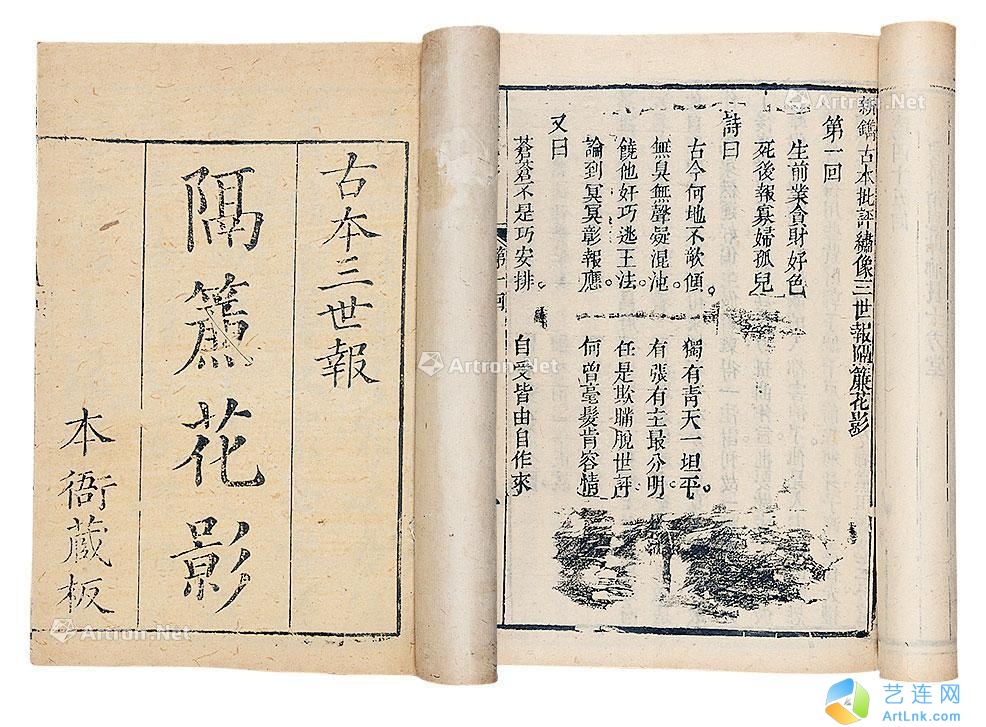 古本三世報
隔簾花影
本衙蔵板
新鐫古本批評繡像三世報隔簾花影
第一回
生前業貪財好色
死後報寡婦孤兒
詩曰
古今何地不欹傾。 獨有青天一坦平。
無臭無聲疑混沌。 有張有主最分明。
饒他奸巧逃王法。 任是欺瞞脫世評
論到冥冥彰報應。 何曾毫髮肯容情
又曰
蒼蒼不是巧安排。 自受皆由自作來
第一回
Artron.Net
Artron.Net
Artron.Net
Artron.Net
Artron.Net
艺连网
ArtLnk.com